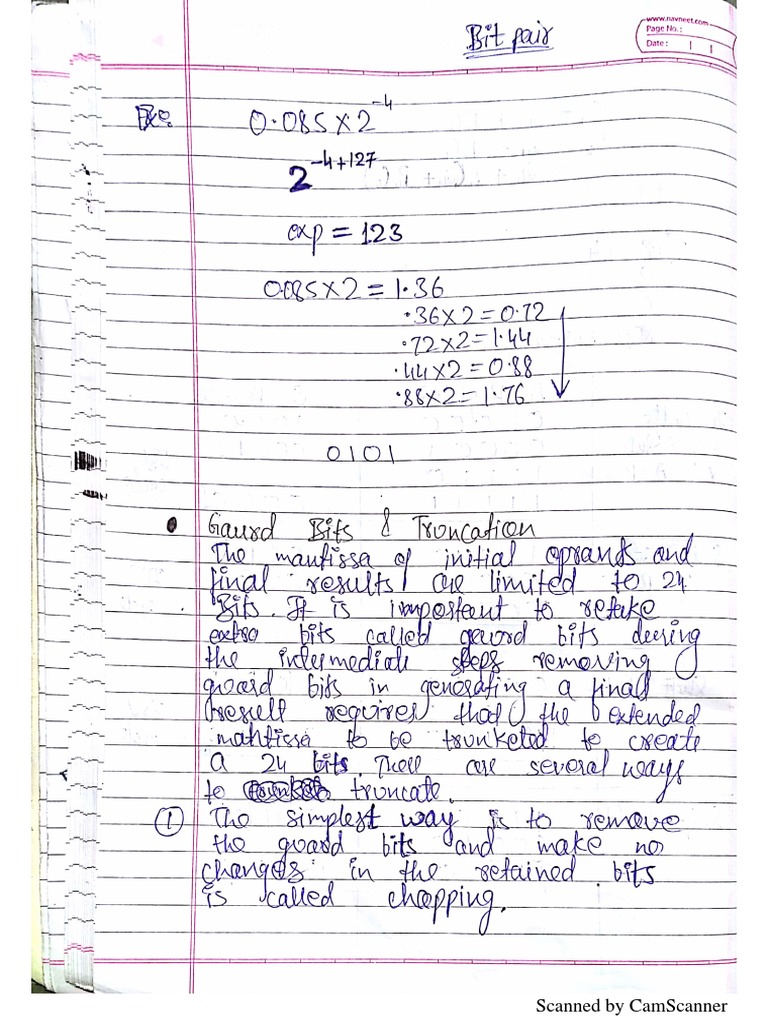 Bit pair
www.navneet.com
Page No.:
Date:
Ex:
0.085×2^-4
2^-4+127
exp = 123
0.085×2 = 1.36
.36×2=0.72
.72×2=1.44
.44×2=0.88
.88×2=1.76
0101
• Gaurd Bits & Truncation
The mantissa of initial oprands and
final results are limited to 24
Bits. It is impostant to retake
extra bits called gaurd bits during
the intermediate steps removing
guard bits in generating a final
result requires that the extended
mantissa to be trunketed to create
a 24 bits. There are several ways
to truncate.
① The simplest way is to remove
the guard bits and make no
changes in the retained bits
is called chopping.
Scanned by CamScanner